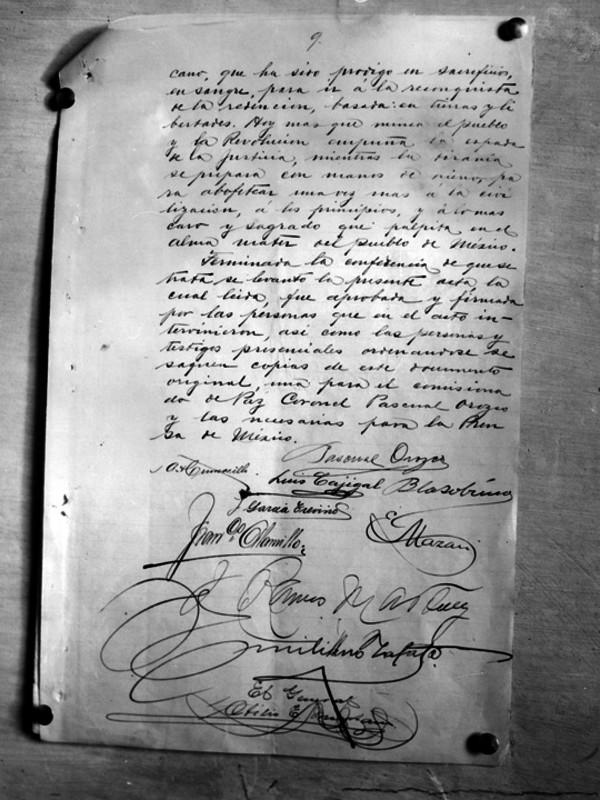 9.
cano, que ha sido prodigo en sacrificios,
en sangre, para ir á la reconquista
de la redencion, basada en tierras y li
bertades. Hoy mas que nunca el pueblo
y la Revolucion empuña la espada
de la justicia, mientras la tirania
se prepara con manos de pa
ra abofetear una vez mas á la civi
lizacion, á los principios, y á lo mas
caro y sagrado que palpita en el
alma mater del pueblo de México.
Terminada la conferencia de que se
trata se levantó la presente acta, la
cual leida, fue aprobada y firmada
por las personas que en el acto in-
tervinieron, asi como las personas y
testigos presenciales ordenandose se
saquen copias de este documento
original, una para el comisiona
do de Paz Coronel Pascual Orozco
y las necesarias para la Pren
sa de México.
Pascual Orozco
Luis Cajigal
J Garcia
E Mazari
J Ramos Martinez
Emiliano Zapata
El General
Otilio E Montaño